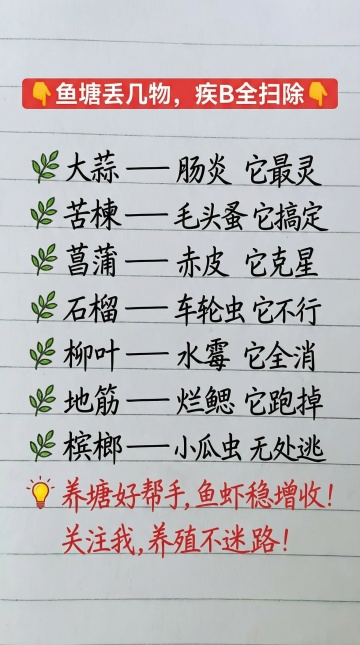 👇鱼塘丢几物，疾B全扫除👇
🌿大蒜——肠炎 它最灵
🌿苦楝——毛头蚤它搞定
🌿菖蒲——赤皮 它克星
🌿石榴——车轮虫它不行
🌿柳叶——水霉 它全消
🌿地筋——烂鳃 它跑掉
🌿槟榔——小瓜虫 无处逃
💡养塘好帮手,鱼虾稳增收!
关注我,养殖不迷路!